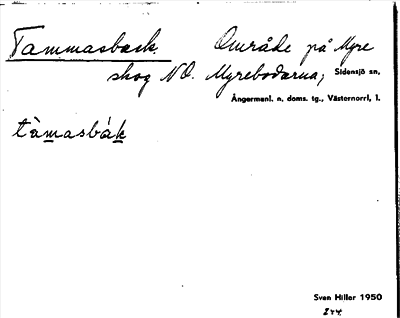 Tammasback. Område på Myre
skog NO. Myrebodarna, Sidensjö sn,
Ångermanl. n. doms. tg., Västernorrl, l.
tàmasbák
Sven Hiller 1950
244